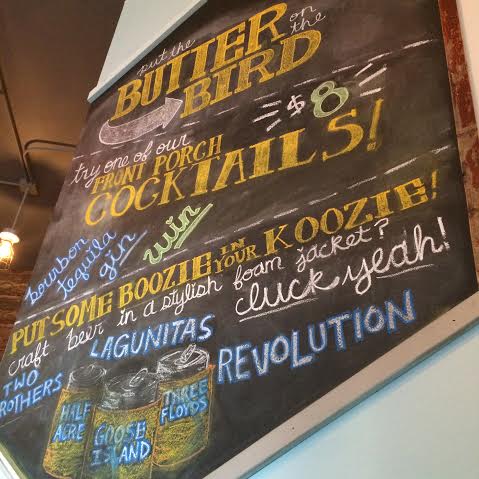 put the
BUTTER on
the
BIRD
try one of our $8
FRONT PORCH
COCKTAILS!
bourbon
tequila
gin
win
PUT SOME BOOZIE IN YOUR KOOZIE!
craft beer in a stylish foam jacket?
cluck yeah!
LAGUNITAS
REVOLUTION
TWO
BROTHERS
HALF
ACRE
GOOSE
ISLAND
THREE
FLOYDS